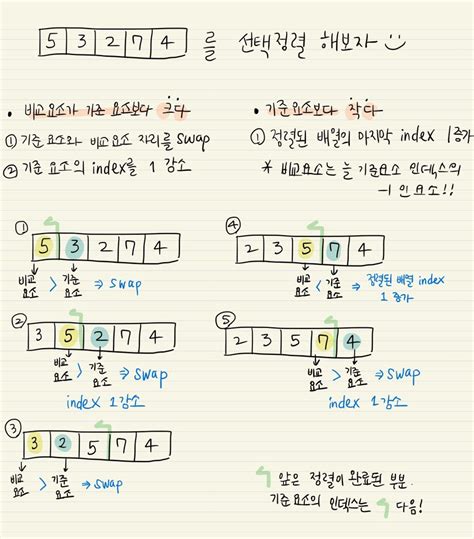 5 3 2 7 4 를 선택정렬 해보자
• 비교요소가 기준 요소보다 크다
① 기준 요소와 비교요소 자리를 swap
② 기준 요소의 index를 1 감소
• 기준요소보다 작다
① 정렬된 배열의 마지막 index 1증가
* 비교요소는 늘 기준요소 인덱스의
-1 인 요소!!
①
5 3 2 7 4
비교 > 기준 ⇒ swap
요소 요소
②
3 5 2 7 4
비교 > 기준 ⇒ swap
요소 요소
index 1감소
③
3 2 5 7 4
비교 > 기준 ⇒ swap
요소 요소
④
2 3 5 7 4
비교 < 기준 ⇒ 정렬된 배열 index
요소 요소 1 증가
⑤
2 3 5 7 4
비교 > 기준 ⇒ swap
요소 요소
index 1감소
앞은 정렬이 완료된 부분.
기준요소의 인덱스는 다음!